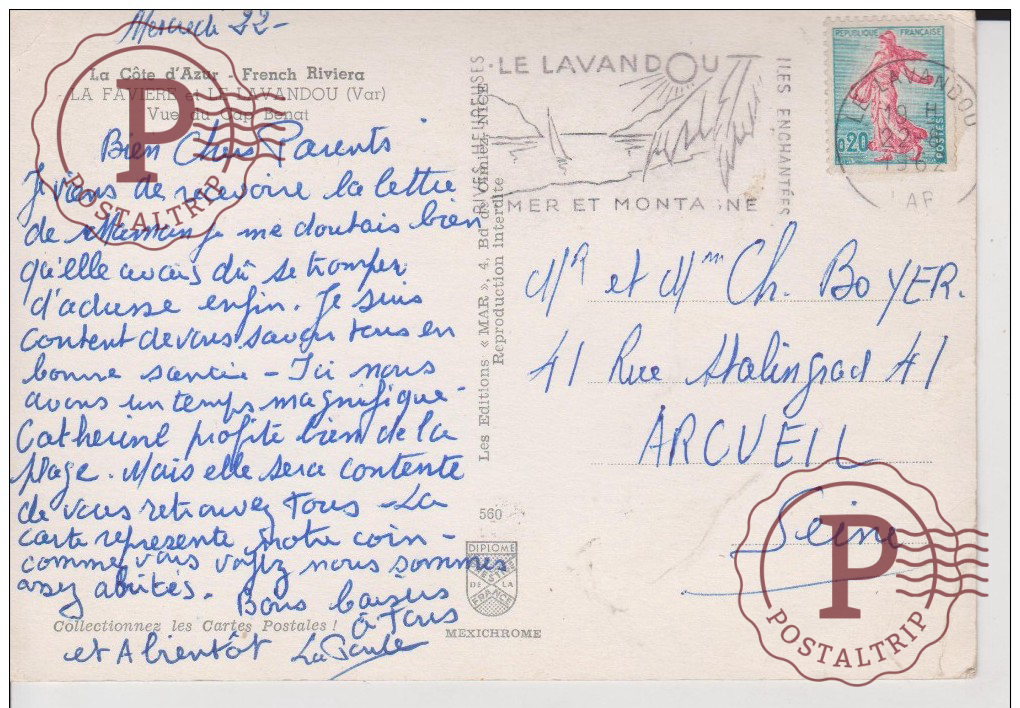 Mercredi 22-
La Côte d'Azur - French Riviera
LA FAVIERE et LE LAVANDOU (Var)
Vue du Cap Bénat
Bien Chers Parents
Je viens de recevoire la lettre
de Maman je me doutais bien
qu'elle avais dû se tromper
d'adresse enfin. Je suis
content de vous savoir tous en
bonne santée - Ici nous
avons un temps magnifique -
Catherine profite bien de la
plage. Mais elle sera contente
de vous retrouvez tous - La
carte represente notre coin -
comme vous voyez nous sommes
assez abrités.
Bons baisers
à Tous
et A bientôt
Collectionnez les Cartes Postales !
Les Editions « MAR », 4, Bd de Cimiez, NICE
Reproduction interdite
560
DIPLOME
PRESTIGE
DE LA
FRANCE
MEXICHROME
RIVES HEUREUSES
LE LAVANDOU
ILES ENCHANTÉES
MER ET MONTAGNE
REPUBLIQUE FRANÇAISE
0,20
POSTES
LE LAVANDOU
VAR
Mr et Mm Ch. BOYER.
41 Rue Stalingrad 41
ARCUEIL
Seine
P
POSTALTRIP
P
POSTALTRIP